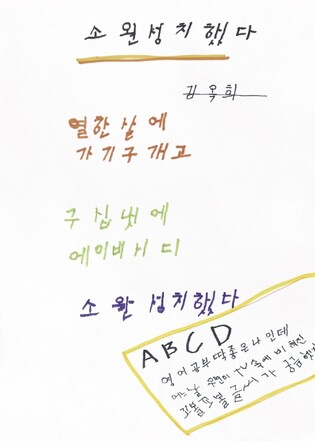 소원성취했다
김옥희
열한살에
가기구개고
구십넷에
에이비시디
소원성취했다
ABCD
영어공부 딱 좋은 나인데
어느날 우연히 TV속에 비쳐진
꼬불꼬불 글씨가 궁금했